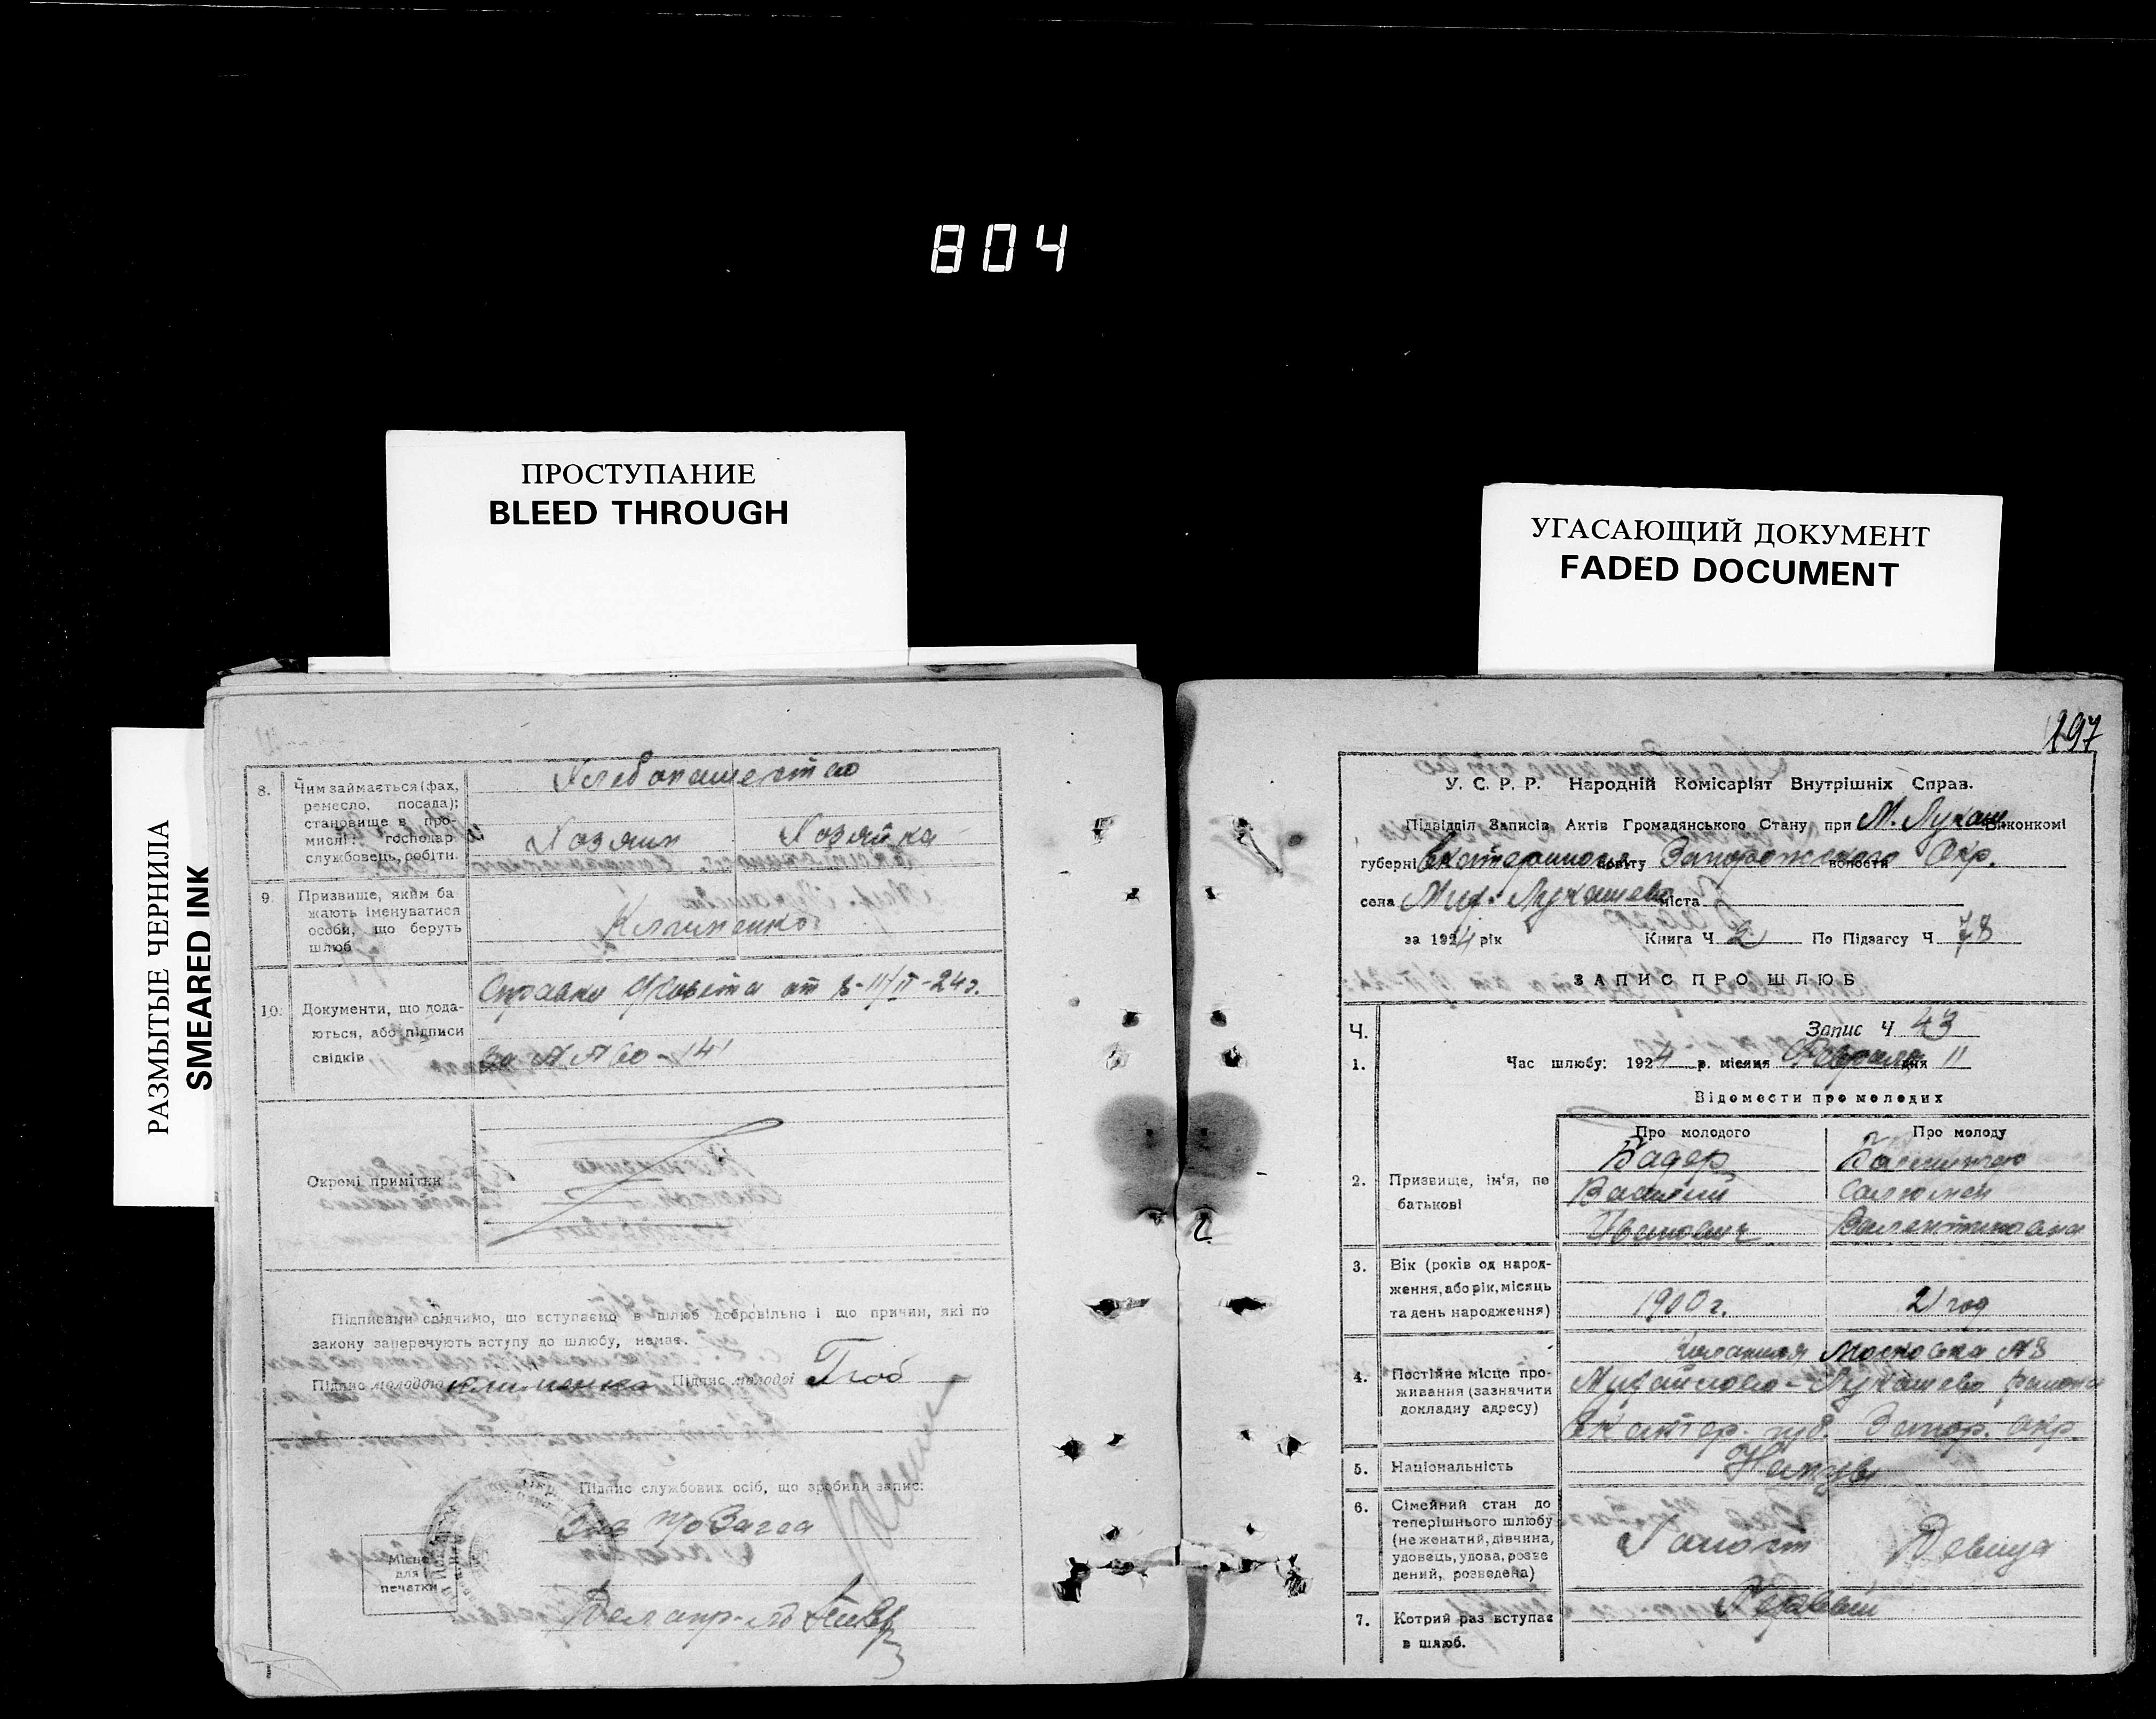 804
ПРОСТУПАНИЕ
BLEED THROUGH
УГАСАЮЩИЙ ДОКУМЕНТ
FADED DOCUMENT
РАЗМЫТЫЕ ЧЕРНИЛА
SMEARED INK
8. Чим займається (фах,
ремесло, посада);
становище в про-
мислі: господар
службовець, робітн.
Хлебопашество
Хозяин Хозяйка
9. Призвище, яким ба
жають іменуватися
особи, що беруть
шлюб
Клименко
10. Документи, що дода-
ються, або підписи
свідків
Справка от 8-11/II-24г.
за 60-141
Окремі примітки
Підписами свідчимо, що вступаємо в шлюб добровільно і що причин, які по
закону заперечують вступу до шлюбу, немає.
Підпис молодого Клименко Підпис молодої
Підпис службових осіб, що зробили запис:
Зав Загса
Місце
для
печатки
197
У. С. Р. Р. Народній Комісаріят Внутрішніх Справ.
Підвідділ Записів Актів Громадянського Стану при М. Лукаш. Виконкомі
губерні Екатеринослав повіту Запорожского волости Окр.
села Мих. Лукашево міста
за 1924 рік Книга Ч 2 По Підзагсу Ч 78
ЗАПИС ПРО ШЛЮБ
Ч. Запис Ч 43
1. Час шлюбу: 1924 р. місяця Февраля дня 11
Відомости про молодих
Про молодого Про молоду
2. Призвище, ім'я, по
батькові
Бадер
Василий
Иванович Валентиновна
3. Вік (років од народ-
ження, або рік, місяць
та день народження)
1900 г. 21 год
4. Постійне місце про-
живання (зазначити
докладну адресу)
Колония Московка №8
Михайлово-Лукашево района
Екатер. губ. Запор. окр.
5. Національність
Немцы
6. Сімейний стан до
теперішнього шлюбу
(неженатий, дівчина,
удовець, удова, розве
дений, розведена)
Холост Девица
7. Котрий раз вступає
в шлюб.
Первый